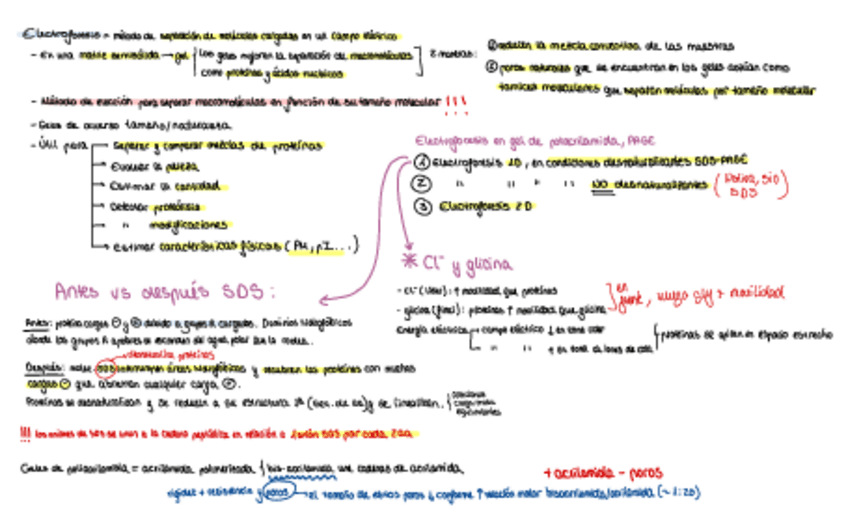 Electroforesis = método de separación de moléculas cargadas en un campo eléctrico
- En una matriz semisólida → gel
Los geles mejoran la separación de macromoléculas
como proteínas y ácidos nucleicos
2 maneras:
① reducen la mezcla convectiva de las muestras
② poros naturales que se encuentran en los geles actúan como
tamices moleculares que separan moléculas por tamaño molecular
- Método de elección para separar macromoléculas en función de su tamaño molecular !!!
- Geles de acuerdo tamaño/naturaleza
- Útil para
→ Separar y comparar mezclas de proteínas
→ Evaluar la pureza
→ Estimar la cantidad
→ Detectar proteólisis
→ " modificaciones
→ Estimar características físicas (PM, pI...)
Electroforesis en gel de poliacrilamida, PAGE
① Electroforesis 1D, en condiciones desnaturalizantes SDS-PAGE
② " " " " NO desnaturalizantes (Nativa, sin SDS)
③ Electroforesis 2D
* Cl⁻ y glicina
- Cl⁻ (líder): ↑ movilidad que proteínas
- glicina (final): proteínas ↑ movilidad que glicina
en frent, luego gly + movilidad
Energía eléctrica → campo eléctrico ↓ en zona líder
→ " " ↑ en zona
proteínas se apilan en espacio estrecho
Antes vs después SDS:
Antes: proteína cargas ⊖ y ⊕ debido a grupos R cargados. Dominios hidrofóbicos
donde los grupos R apolares se esconden del agua polar
desnaturaliza proteínas
Después: SDS interrumpen áreas hidrofóbicas y recubren las proteínas con muchas
cargas ⊖ que abruman cualquier carga ⊕.
Proteínas se desnaturalizan y se reducen a su estructura 1ª (sec. de aa) y se linealizan.
!!! los aniones de SDS se unen a la cadena peptídica en relación a 1 anión SDS por cada 2aa
Geles de poliacrilamida = acrilamida polimerizada / bis-acrilamida une cadenas de acrilamida
+ acrilamida - poros
rigidez + resistencia y poros → el tamaño de estos poros ↓ conforme ↑ relación molar bisacrilamida/acrilamida (~1:20)